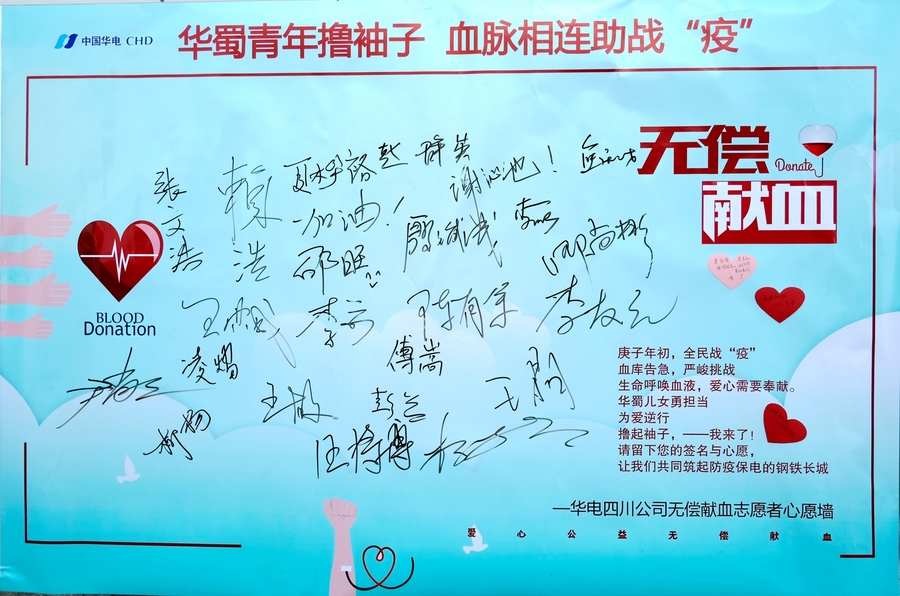 中国华电 CHD
华蜀青年撸袖子 血脉相连助战“疫”
无偿
Donate
献血
张文浩
赖浩
加油！
谢沁池！
邵眠
李云
陈有宗
李友元
凌熠
傅嵩
王敏
彭兰
王刚
柳杨
汪梓骞
BLOOD
Donation
庚子年初，全民战“疫”
血库告急，严峻挑战
生命呼唤血液，爱心需要奉献。
华蜀儿女勇担当
为爱逆行
撸起袖子，——我来了！
请留下您的签名与心愿，
让我们共同筑起防疫保电的钢铁长城
—华电四川公司无偿献血志愿者心愿墙
爱心公益无偿献血